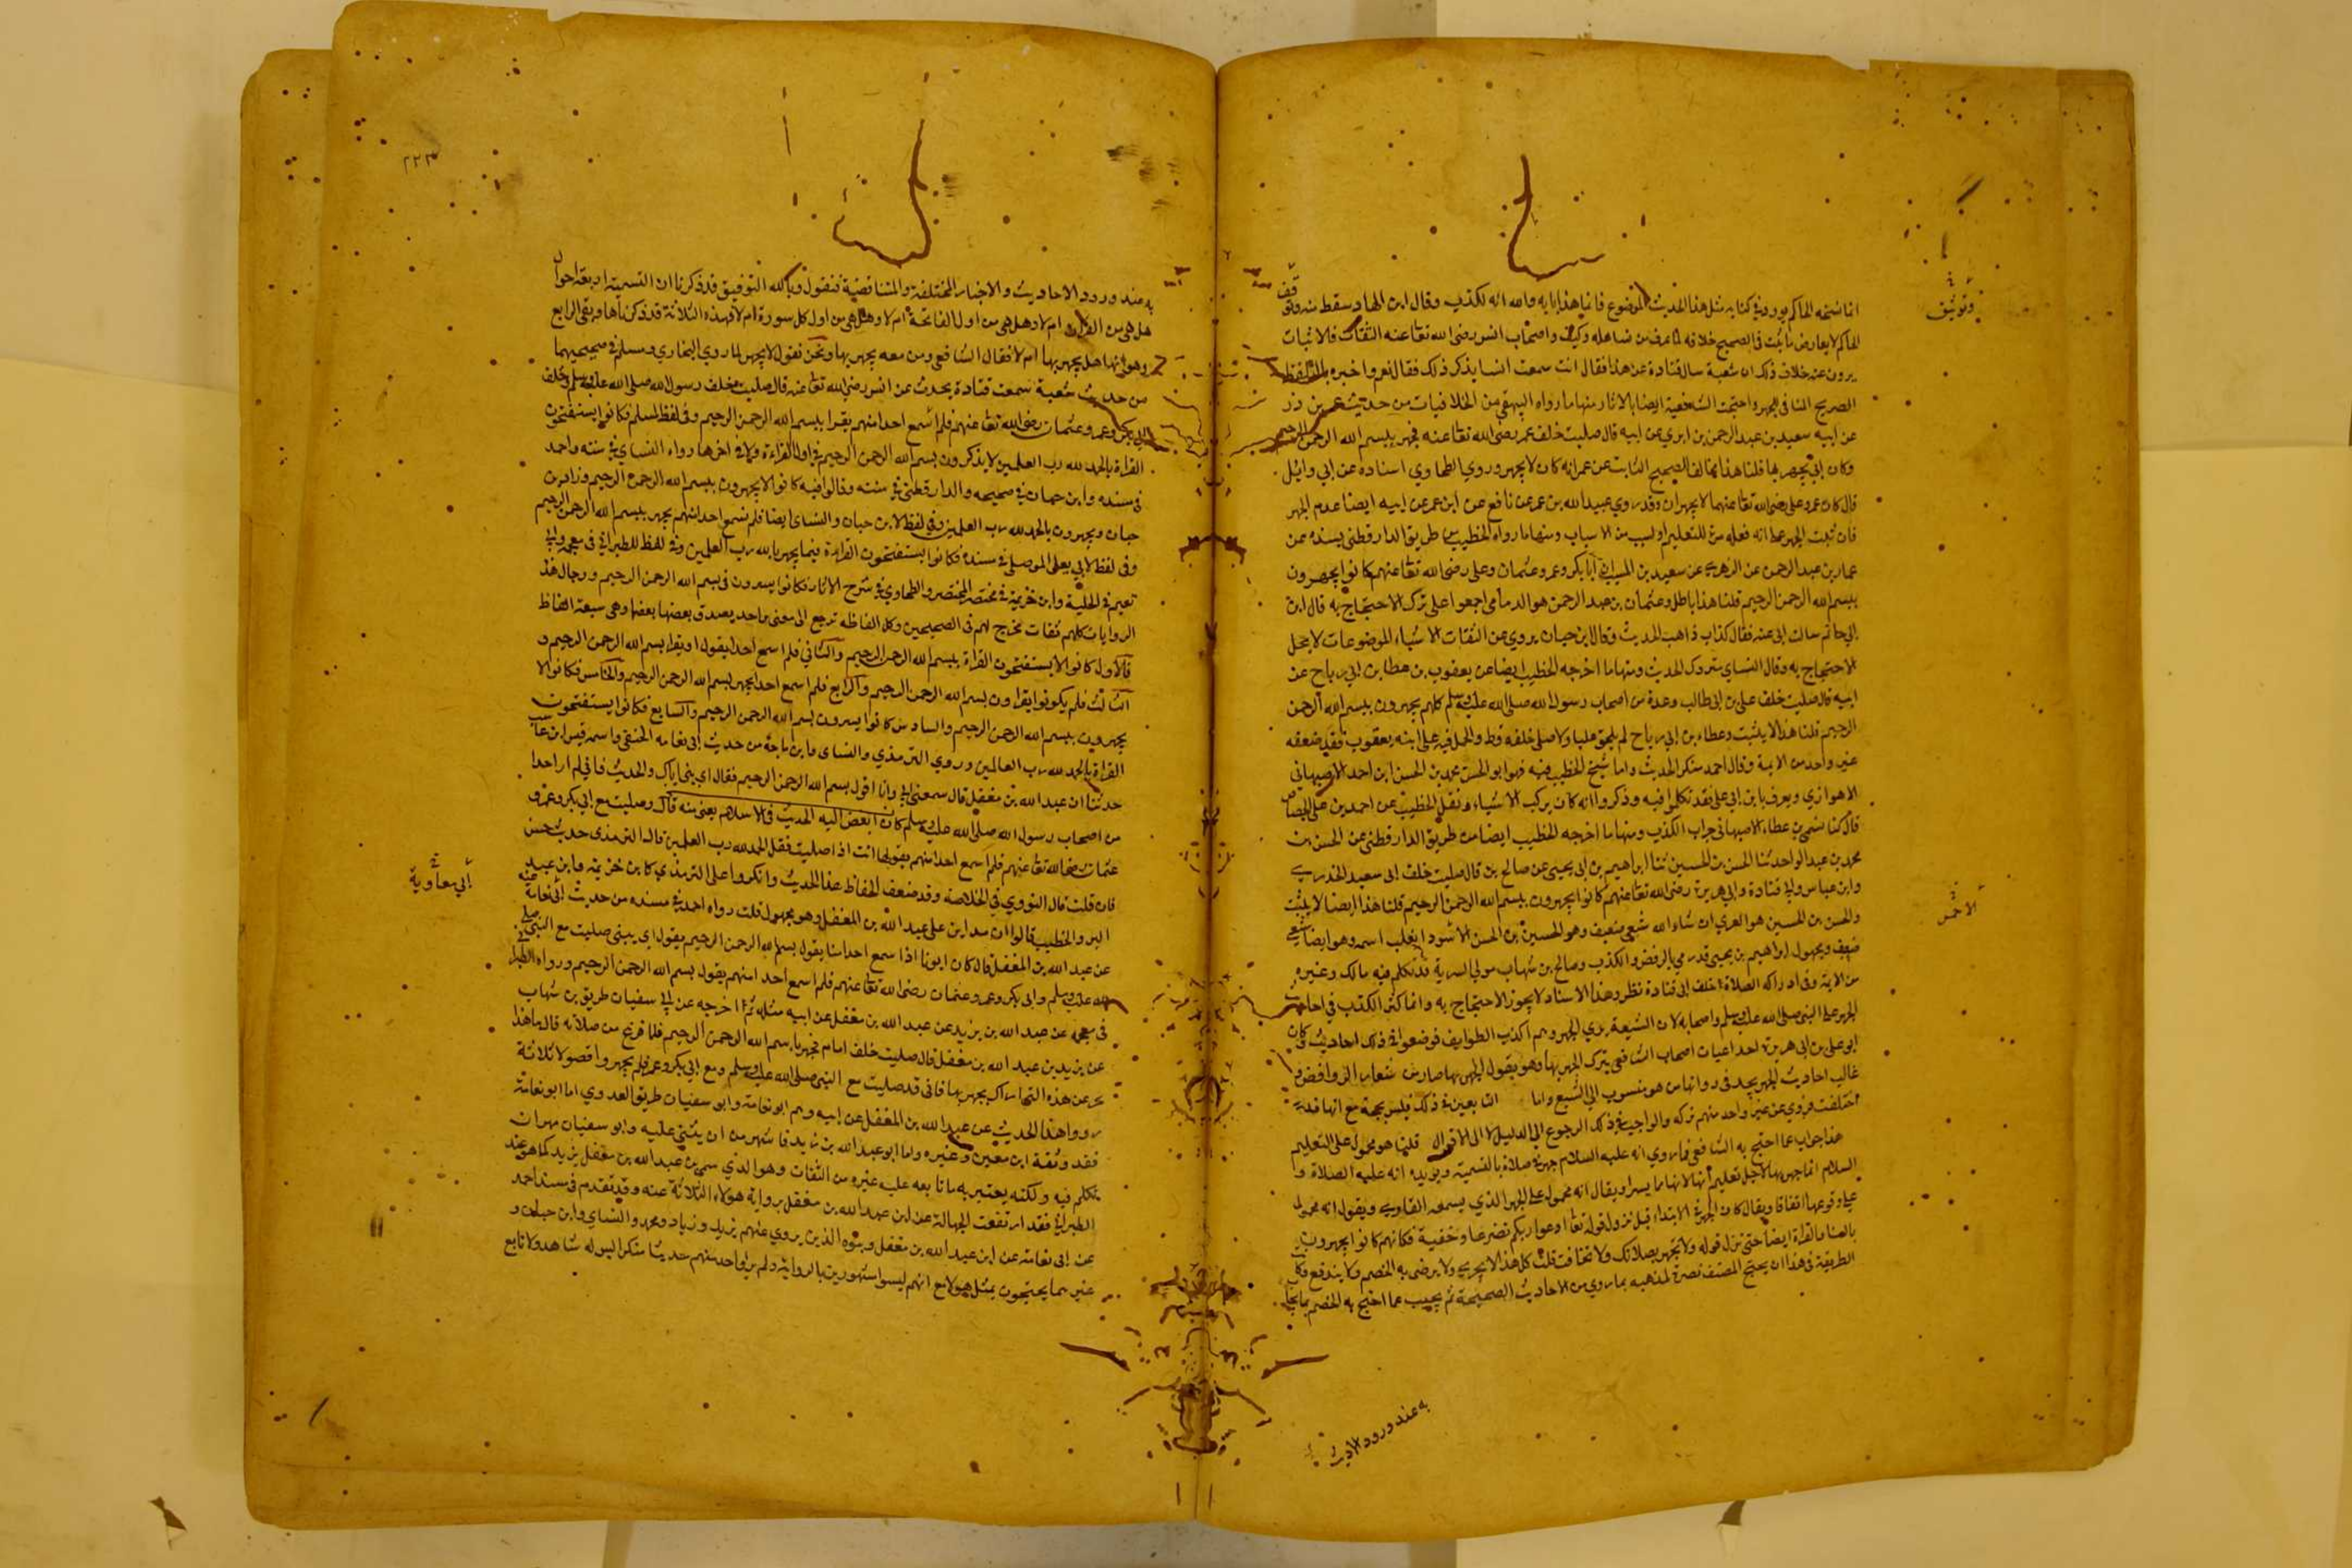 انما نتجه الحاكم يورد في كتابه مثل هذا الحديث الموضوع فانما هذا بابه والله انه لكذب وقال ابن الهاد سقط منه
وتوثيق
الحاكم لا يعارض ما يثبت في الصحيح خلافه لما عرف من تساهله وكيف واصحاب انس رضي الله تعا عنه الثقات فالاثبات
يرون عنه خلاف ذلك ان شعبة سال قتادة عن هذا فقال انت سمعت انسا يذكر ذلك فقال نعم واخبره باللفظ
الصريح المنافي للجهر واحتجت الشافعية ايضا بالاثار منها ما رواه البيهقي من الخلافيات من حديث عمر بن ذر
عن ابيه سعيد بن عبد الرحمن بن ابزي عن ابيه قال صليت خلف عمر رضي الله تعا عنه فجهر ببسم الله الرحمن الرحيم
وكان ابي يجهر بها قلنا هذا مخالف الصحيح الثابت عن عمر انه كان لا يجهر وروي الطحاوي اسناده عن ابي وائل
قال كان عمر وعلي رضي الله تعا عنهما لا يجهران وقد روي عبيد الله بن عمر عن نافع عن ابن عمر عن ابيه ايضا عدم الجهر
فان ثبت الجهر عنه انه فعله مرة للتعليم او لسبب من الاسباب ومنها ما رواه الخطيب من طريق الدارقطني بسنده عن
عمار بن عبد الرحمن عن الزهري عن سعيد بن المسيب ان ابا بكر وعمر وعثمان وعلي رضي الله تعا عنهم كانوا يجهرون
ببسم الله الرحمن الرحيم قلنا هذا باطل وعثمان بن عبد الرحمن هو الدمامي اجمعوا على ترك الاحتجاج به قال ابن
ابي حاتم سالت ابي عنه فقال كذاب ذاهب الحديث وقال ابن حبان يروي عن الثقات الاشياء الموضوعات لا يحل
الاحتجاج به وقال النسائي متروك الحديث ومنها ما اخرجه الخطيب ايضا عن يعقوب بن عطا بن ابي رباح عن
ابيه قال صليت خلف علي بن ابي طالب وعدة من اصحاب رسول الله صلى الله عليه وسلم كلهم يجهرون ببسم الله الرحمن
الرحيم قلنا هذا لا يثبت وعطاء بن ابي رباح لم يلحق عليا ولا صلى خلفه قط والحمل فيه على ابنه يعقوب فقد ضعفه
غير واحد من الائمة وقال احمد منكر الحديث واما شيخ الخطيب فيه فهو ابو الحسن محمد بن الحسن ابن احمد الاصبهاني
الاهوازي ويعرف بابن ابي علي فقد تكلموا فيه وذكروا انه كان يركب الاشياء ونقل الخطيب عن احمد بن علي الجصاص
قال كنا نسمي بن عطاء الاصبهاني جراب الكذب ومنها ما اخرجه الخطيب ايضا من طريق الدارقطني عن الحسن بن
محمد بن عبد الواحد ثنا الحسن بن الحسين ثنا ابراهيم بن ابي يحيى عن صالح بن قال صليت خلف ابي سعيد الخدري
وابن عباس وابي قتادة وابي هريرة رضي الله تعا عنهم كانوا يجهرون ببسم الله الرحمن الرحيم قلنا هذا ايضا لا يثبت
والحسن بن الحسين هو العرني ان شاء الله شيعي ضعيف وهو الحسين بن الحسن الاشود انقلب اسمه وهو ايضا شيعي
ضعيف ومجهول ابراهيم بن يحيى قد رمي بالرفض والكذب وصالح بن شهاب مولي السرية قد تكلم فيه مالك وغيره
من الائمة وفي ادراكه الصلاة خلف ابي قتادة نظر وهذا الاسناد لا يجوز الاحتجاج به وانما كثر الكذب في احاديث
الجهر على النبي صلى الله عليه وسلم واصحابه لان الشيعة يري الجهر وهم اكذب الطوايف فوضعوا في ذلك احاديث وكان
ابو علي بن ابي هريرة احد اعيان اصحاب الشافعي يترك الجهر بها وهو يقول الجهر بها صار من شعار الروافض
غالب احاديث الجهر يجد في رواتها من هو منسوب الى التشيع واما التابعين في ذلك فليس بحجة مع انها قد
اختلفت فروي عن غير واحد منهم تركه والواجب في ذلك الرجوع الى الدليل لا الى الاقوال قلنا هو محمول على التعليم
هذا جواب عما احتج به الشافعي فما روي انه عليه السلام جهر في صلاة بالتسمية ويويده انه عليه الصلاة و
السلام انما جهر بها لاجل تعليم انها لانها ما يسر او يقال انه محمول على الجهر الذي يسمعه القاري ويقول انه محمول
علي وقوعها اتفاقا ويقال كان الجهر في الابتداء قبل نزول قوله تعا ادعوا ربكم تضرعا وخفية فكانهم كانوا يجهرون
بالثناء بالقراة ايضا حتى نزل قوله ولا تجهر بصلاتك ولا تخافت قلت كل هذا لا يجدي ولا يرضى به الخصم ولا يندفع
الطريقة في هذا ان يحتج المصنف نصرة لمذهبه بما روي من الاحاديث الصحيحة ثم يجيب عما احتج به الخصم بما يجاب
به عند ورود الاحاديث
به عند ورود الاحاديث والاخبار المختلفة والمتناقضة فنقول وبالله التوفيق قد ذكرنا ان التسمية اربعة احوال
هل هي من القران ام لا وهل هي من اول الفاتحة ام لا وهل هي من اول كل سورة ام لا فهذه الثلاثة قد ذكرناها وبقي الرابع
وهو انها هل يجهر بها ام لا فقال الشافعي ومن معه يجهر بها ونحن نقول لا يجهر لما روي البخاري ومسلم في صحيحيهما
من حديث شعبة سمعت قتادة يحدث عن انس رضي الله تعا عنه قال صليت خلف رسول الله صلى الله عليه وسلم وخلف
ابي بكر وعمر وعثمان رضي الله تعا عنهم فلم اسمع احدا منهم يقرا ببسم الله الرحمن الرحيم وفي لفظ لمسلم فكانوا يستفتحون
القراة بالحمد لله رب العلمين لا يذكرون بسم الله الرحمن الرحيم في اول القراءة ولا في اخرها رواه النسائي في سننه واحمد
في مسنده وابن حبان في صحيحه والدارقطني في سننه وقالوا فيه كانوا لا يجهرون ببسم الله الرحمن الرحيم وزاد بن
حبان ويجهرون بالحمد لله رب العلمين وفي لفظ لابن حبان والنسائي ايضا فلم نسمع احدا منهم يجهر ببسم الله الرحمن الرحيم
وفي لفظ لابي يعلى الموصلي في مسنده فكانوا يستفتحون القراءة فيما يجهر بالله رب العلمين وفي لفظ للطبراني في معجمه وابي
نعيم في الحلية وابن خزيمة في مختصر المختصر والطحاوي في شرح الاثار فكانوا يسرون في بسم الله الرحمن الرحيم ورجال هذه
الروايات كلهم ثقات مخرج لهم في الصحيحين وكل الفاظه ترجع الى معنى واحد يصدق بعضها بعضا وهي سبعة الفاظ
فالاول كانوا لا يستفتحون القراة ببسم الله الرحمن الرحيم والثاني فلم اسمع احدا يقول او يقرا بسم الله الرحمن الرحيم و
الثالث فلم يكونوا يقراون بسم الله الرحمن الرحيم والرابع فلم اسمع احدا يجهر بسم الله الرحمن الرحيم والخامس فكانوا لا
يجهرون ببسم الله الرحمن الرحيم والسادس كانوا يسرون بسم الله الرحمن الرحيم والسابع فكانوا يستفتحون
القراة بالحمد لله رب العالمين وروي الترمذي والنسائي وابن ماجة من حديث ابي نعامه الحنفي واسمه قيس بن عباية
حدثنا ان عبد الله بن مغفل قال سمعني ابي وانا اقول بسم الله الرحمن الرحيم فقال اي بني اياك والحديث فاني لم ار احدا
من اصحاب رسول الله صلى الله عليه وسلم كان ابغض اليه الحديث في الاسلام يعني منه قال وصليت مع ابي بكر وعمر و
عثمان رضي الله تعا عنهم فلم اسمع احدا منهم يقولها انت اذا صليت فقل الحمد لله رب العلمين قال الترمذي حديث حسن
فان قلت قال النووي في الخلاصة وقد ضعف الحفاظ هذا الحديث وانكروا على الترمذي كابن خزيمة وابن عبد
ابي معاوية
البر والخطيب قالوا ان مداره على عبد الله بن المغفل وهو مجهول قلت رواه احمد في مسنده من حديث ابي نعامة
عن عبد الله بن المغفل قال كان ابونا اذا سمع احدا منا يقول بسم الله الرحمن الرحيم يقول اي بيني صليت مع النبي صلى
الله عليه وسلم وابي بكر وعمر وعثمان رضي الله تعا عنهم فلم اسمع احد امنهم يقول بسم الله الرحمن الرحيم ورواه الطبراني
في معجمه عن عبد الله بن بريد عن عبد الله بن مغفل عن ابيه مثله ثم اخرجه عن ابي سفيان طريف بن شهاب
عن يزيد بن عبد الله بن مغفل قال صليت خلف امام فجهر بسم الله الرحمن الرحيم فلما فرغ من صلاته قال ما هذا
عن هذه التي اراك يجهر بها فاني قد صليت مع النبي صلى الله عليه وسلم ومع ابي بكر وعمر فلم يجهروا فهولا ثلاثة
رووا هذا الحديث عن عبد الله بن المغفل عن ابيه وهم ابو نعامة وابو سفيان طريق العدوي اما ابو نعامة
فقد وثقه ابن معين وغيره واما ابو عبد الله بن بريدة فاشهر من ان يثني عليه وابو سفيان مهران
تكلم فيه ولكنه يعتبر به ما تابعه عليه غيره من الثقات وهو الذي سمي بن عبد الله بن مغفل يزيد كما هو عند
الطبراني فقد ارتفعت الجهالة عن ابن عبد الله بن مغفل برواية هولاء الثلاثة عنه وقد تقدم في مسند احمد
عن ابي نعامة عن ابن عبد الله بن مغفل وبنوه الذين يروي عنهم يزيد وزياد ومحمد والنسائي وابن حبان و
غيرهما يحتجون بمثل هولاء مع انهم ليسوا مشهورين بالرواية ولم يرو احد منهم حديثا منكرا ليس له شاهد ولا تابع